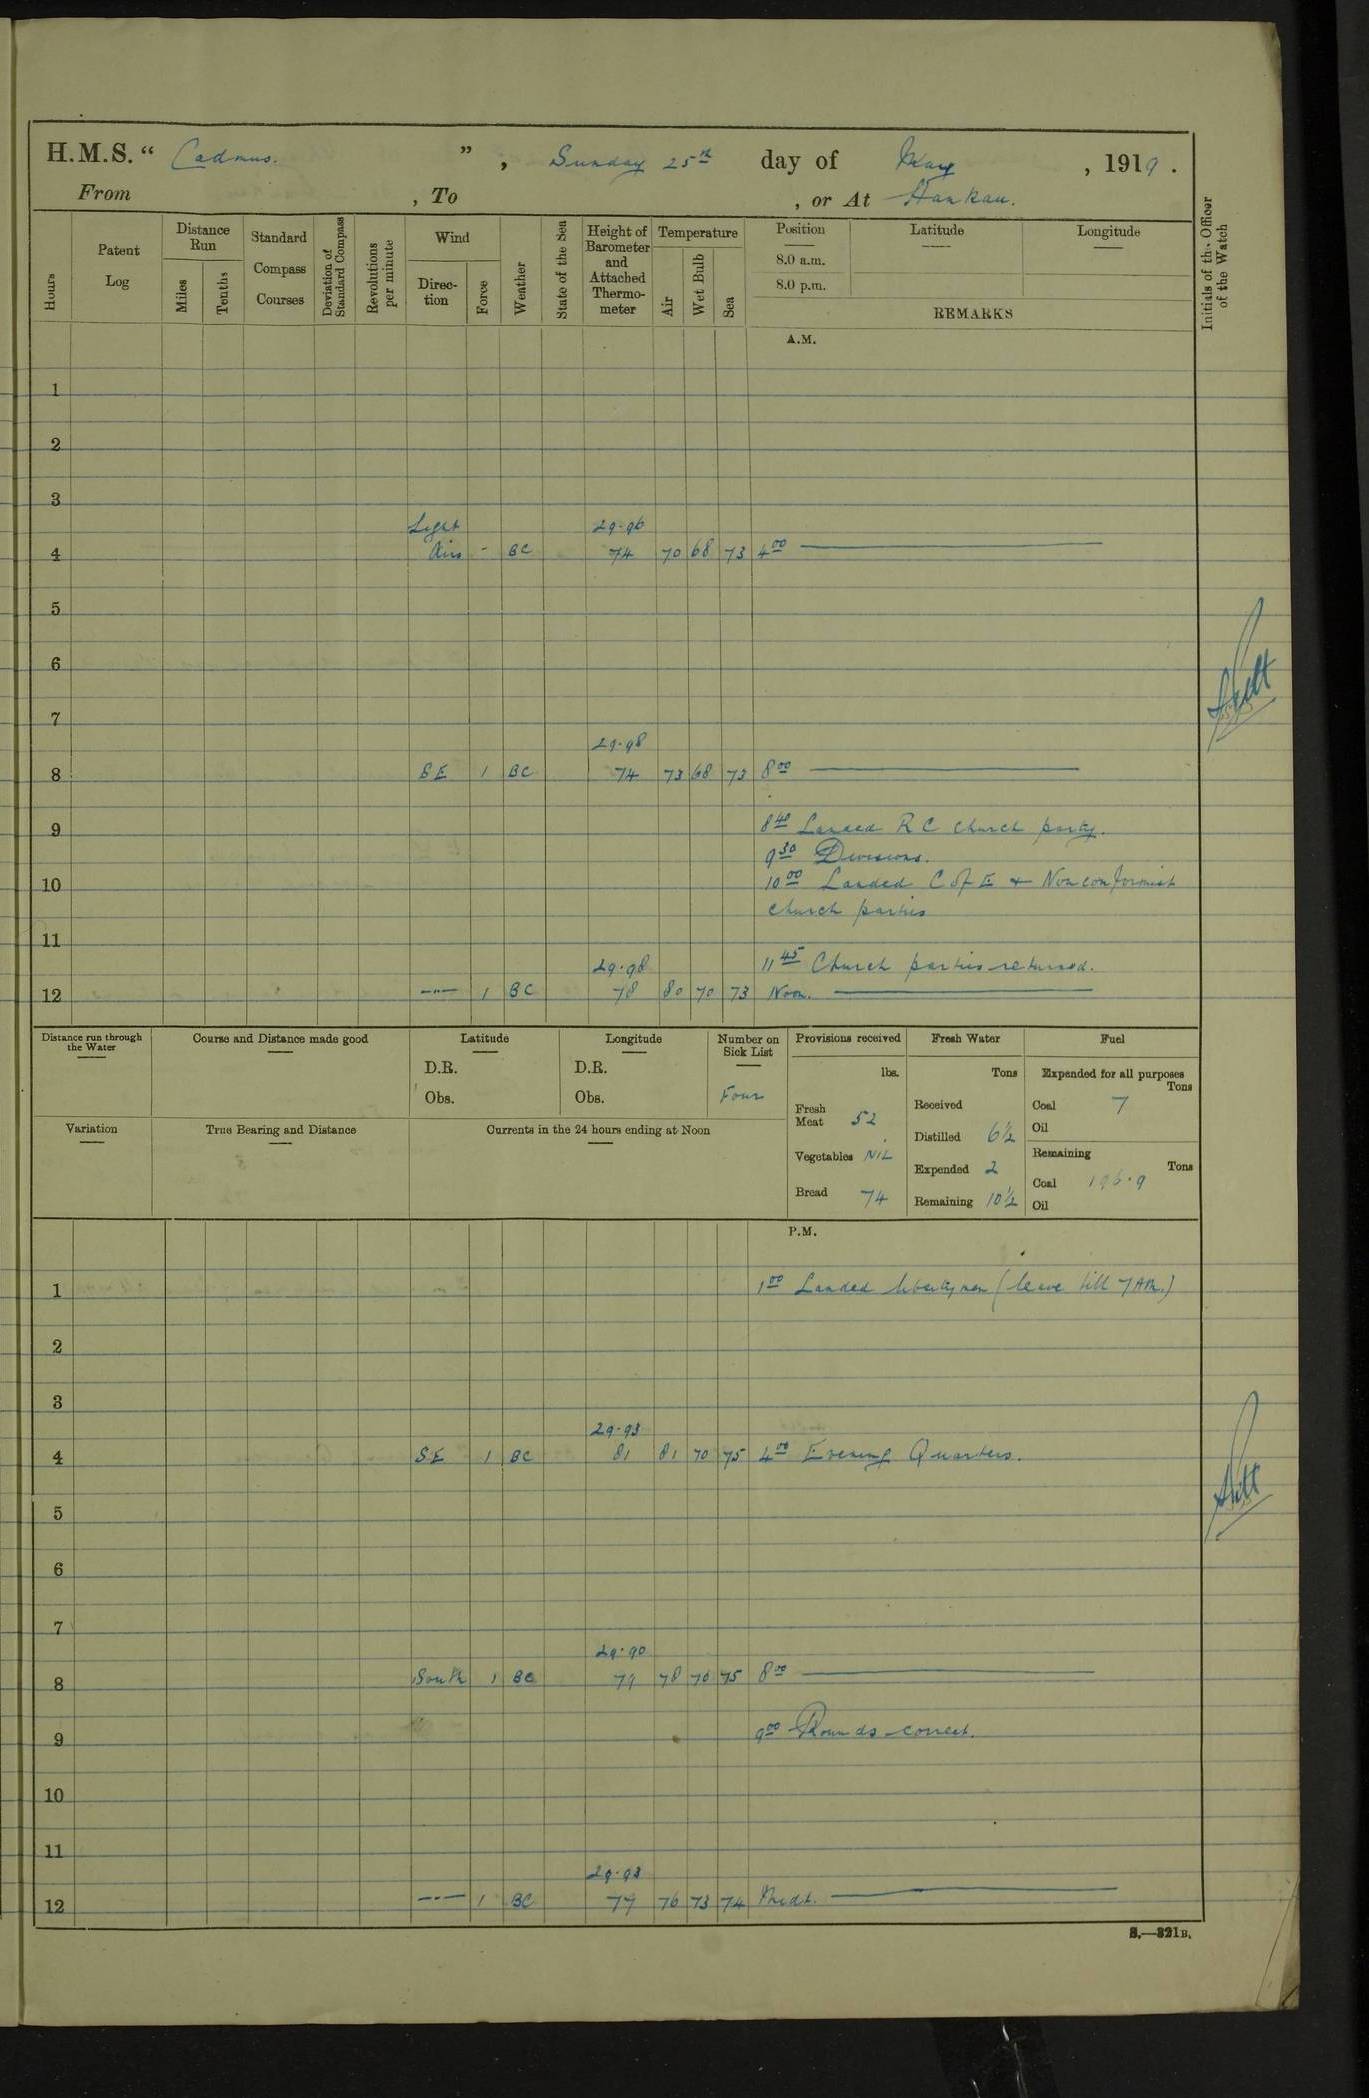 H.M.S. “ Cadmus. ” , Sunday 25th day of May , 1919 .
From , To , or At Hankau.
Hours
Patent Log
Distance Run
Miles
Tenths
Standard Compass Courses
Deviation of Standard Compass
Revolutions per minute
Wind
Direction
Force
Weather
State of the Sea
Height of Barometer and Attached Thermometer
Temperature
Air
Wet Bulb
Sea
Position
8.0 a.m.
8.0 p.m.
Latitude
Longitude
REMARKS
Initials of the Officer of the Watch
A.M.
1
2
3
Light 29·96
4 Airs - BC 74 70 68 73 4 00
5
6
7
29·98
8 SE 1 BC 74 73 68 73 8 00
8 40 Landed R C Church party.
9
9 30 Divisions.
10 10 00 Landed C of E + Nonconformist
Church parties
11
29·98 11 45 Church parties returned.
12 -"- 1 BC 78 80 70 73 Noon.
Distance run through the Water
Course and Distance made good
Latitude
D.R.
Obs.
Longitude
D.R.
Obs.
Number on Sick List
Four
Variation
True Bearing and Distance
Currents in the 24 hours ending at Noon
Provisions received
lbs.
Fresh Meat 52
Vegetables NIL
Bread 74
Fresh Water
Tons
Received
Distilled 6½
Expended 2
Remaining 10½
Fuel
Expended for all purposes
Tons
Coal 7
Oil
Remaining
Tons
Coal 196·9
Oil
P.M.
1 1 00 Landed libertymen (leave till 7 AM.)
2
3
29·93
4 SE 1 BC 81 81 70 75 4 00 Evening Quarters.
5
6
7
29·90
8 South 1 BC 79 78 70 75 8 00
9 9 00 Rounds correct.
10
11
29·93
12 -"- 1 BC 79 76 73 74 Midt.
S.—321B.